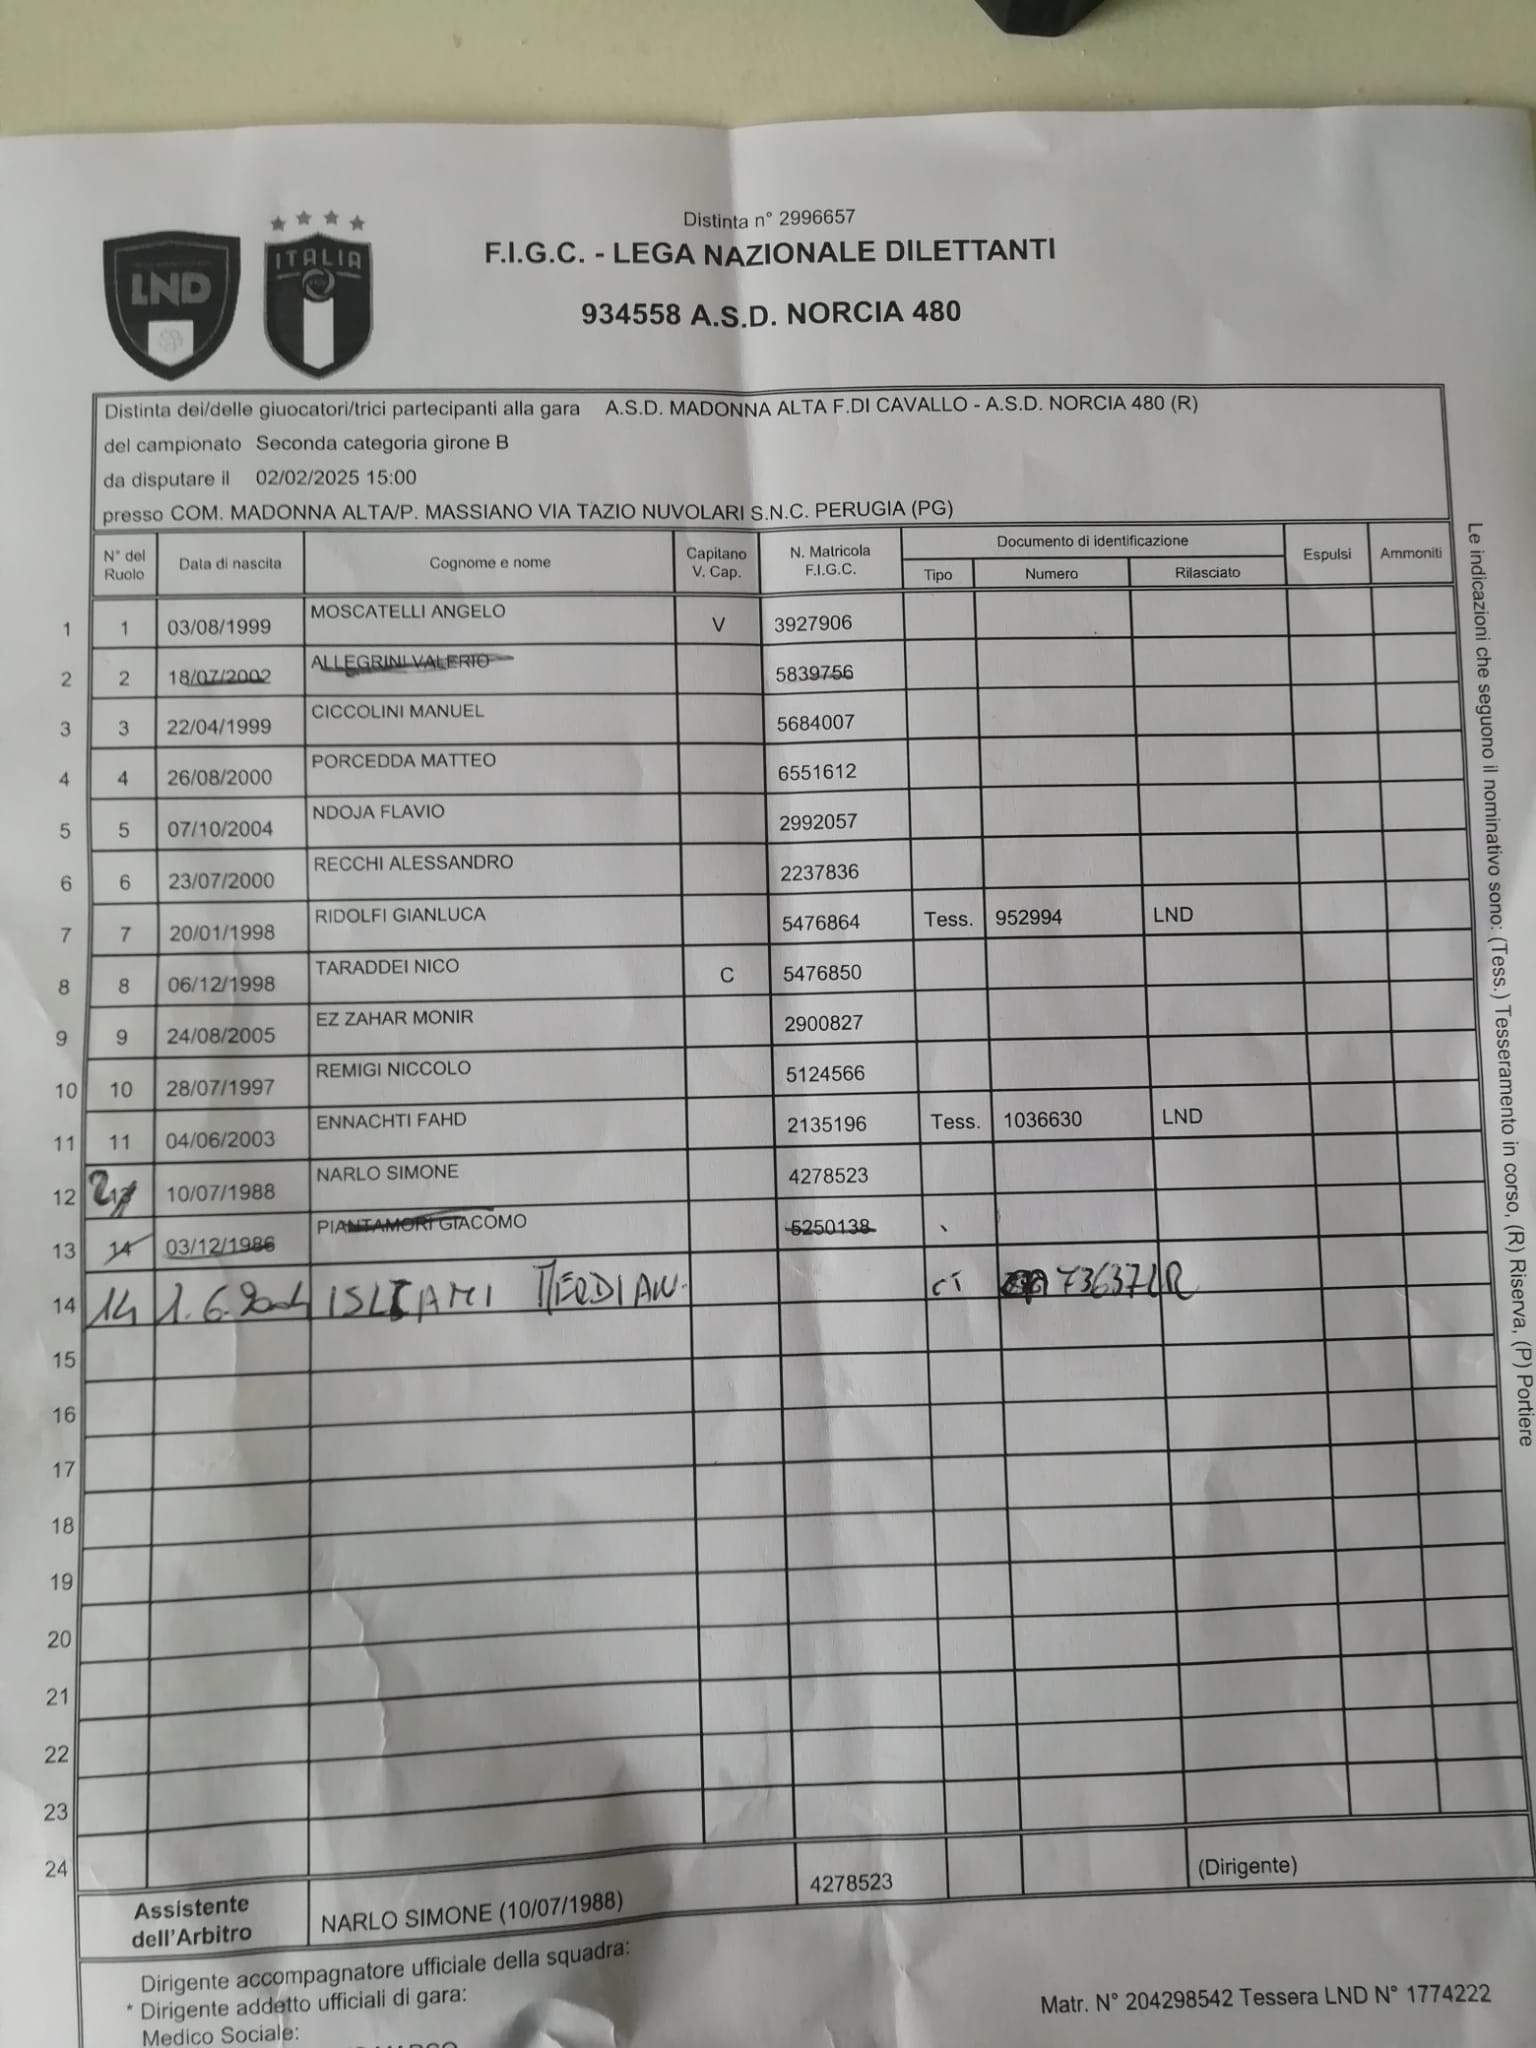 Distinta n° 2996657
LND
ITALIA
F.I.G.C. - LEGA NAZIONALE DILETTANTI
934558 A.S.D. NORCIA 480
Distinta dei/delle giuocatori/trici partecipanti alla gara A.S.D. MADONNA ALTA F.DI CAVALLO - A.S.D. NORCIA 480 (R)
del campionato Seconda categoria girone B
da disputare il 02/02/2025 15:00
presso COM. MADONNA ALTA/P. MASSIANO VIA TAZIO NUVOLARI S.N.C. PERUGIA (PG)
N° del Ruolo Data di nascita Cognome e nome Capitano V. Cap. N. Matricola F.I.G.C. Documento di identificazione Espulsi Ammoniti
Tipo Numero Rilasciato
1 1 03/08/1999 MOSCATELLI ANGELO V 3927906
2 2 18/07/2002 ALLEGRINI VALERIO 5839756
3 3 22/04/1999 CICCOLINI MANUEL 5684007
4 4 26/08/2000 PORCEDDA MATTEO 6551612
5 5 07/10/2004 NDOJA FLAVIO 2992057
6 6 23/07/2000 RECCHI ALESSANDRO 2237836
7 7 20/01/1998 RIDOLFI GIANLUCA 5476864 Tess. 952994 LND
8 8 06/12/1998 TARADDEI NICO C 5476850
9 9 24/08/2005 EZ ZAHAR MONIR 2900827
10 10 28/07/1997 REMIGI NICCOLO 5124566
11 11 04/06/2003 ENNACHTI FAHD 2135196 Tess. 1036630 LND
12 2 10/07/1988 NARLO SIMONE 4278523
13 14 03/12/1986 PIANTAMORI GIACOMO 5250138
14 14 1.6.2004 ISLAMI CI
15
16
17
18
19
20
21
22
23
24
Assistente dell'Arbitro NARLO SIMONE (10/07/1988) 4278523 (Dirigente)
Dirigente accompagnatore ufficiale della squadra:
* Dirigente addetto ufficiali di gara: Matr. N° 204298542 Tessera LND N° 1774222
Medico Sociale:
Le indicazioni che seguono il nominativo sono: (Tess.) Tesseramento in corso, (R) Riserva, (P) Portiere